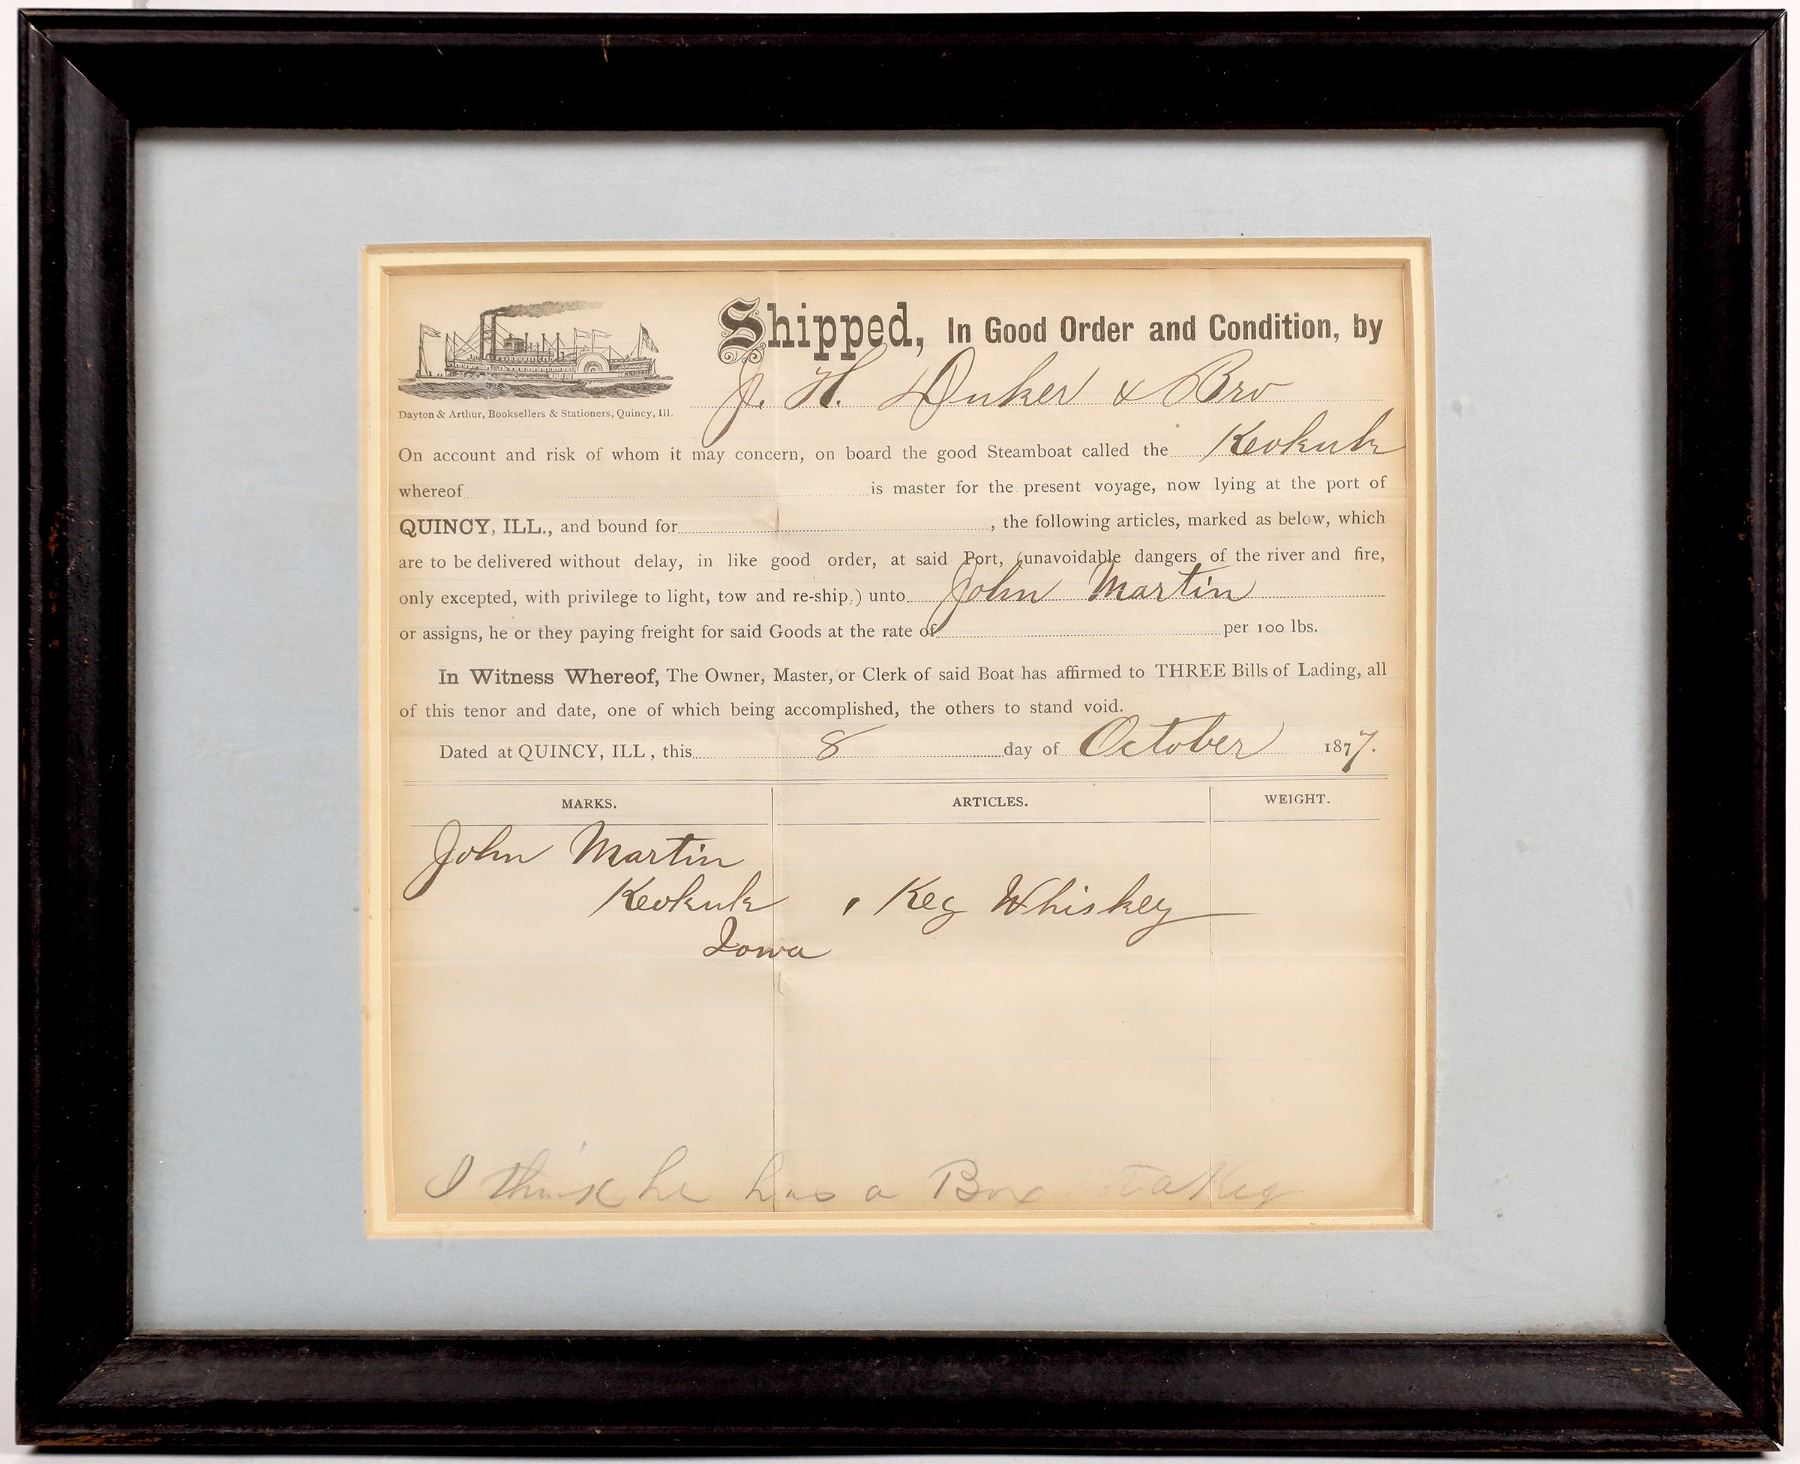 Shipped, In Good Order and Condition, by
Dayton & Arthur, Booksellers & Stationers, Quincy, Ill.
J. H. Duker & Bro
On account and risk of whom it may concern, on board the good Steamboat called the Keokuk
whereof is master for the present voyage, now lying at the port of
QUINCY, ILL., and bound for , the following articles, marked as below, which
are to be delivered without delay, in like good order, at said Port, (unavoidable dangers of the river and fire,
only excepted, with privilege to light, tow and re-ship,) unto John Martin
or assigns, he or they paying freight for said Goods at the rate of per 100 lbs.
In Witness Whereof, The Owner, Master, or Clerk of said Boat has affirmed to THREE Bills of Lading, all
of this tenor and date, one of which being accomplished, the others to stand void.
Dated at QUINCY, ILL, this 8 day of October 1877.
MARKS. ARTICLES. WEIGHT.
John Martin
Keokuk , Keg Whiskey
Iowa
I think he has a Box not a Keg